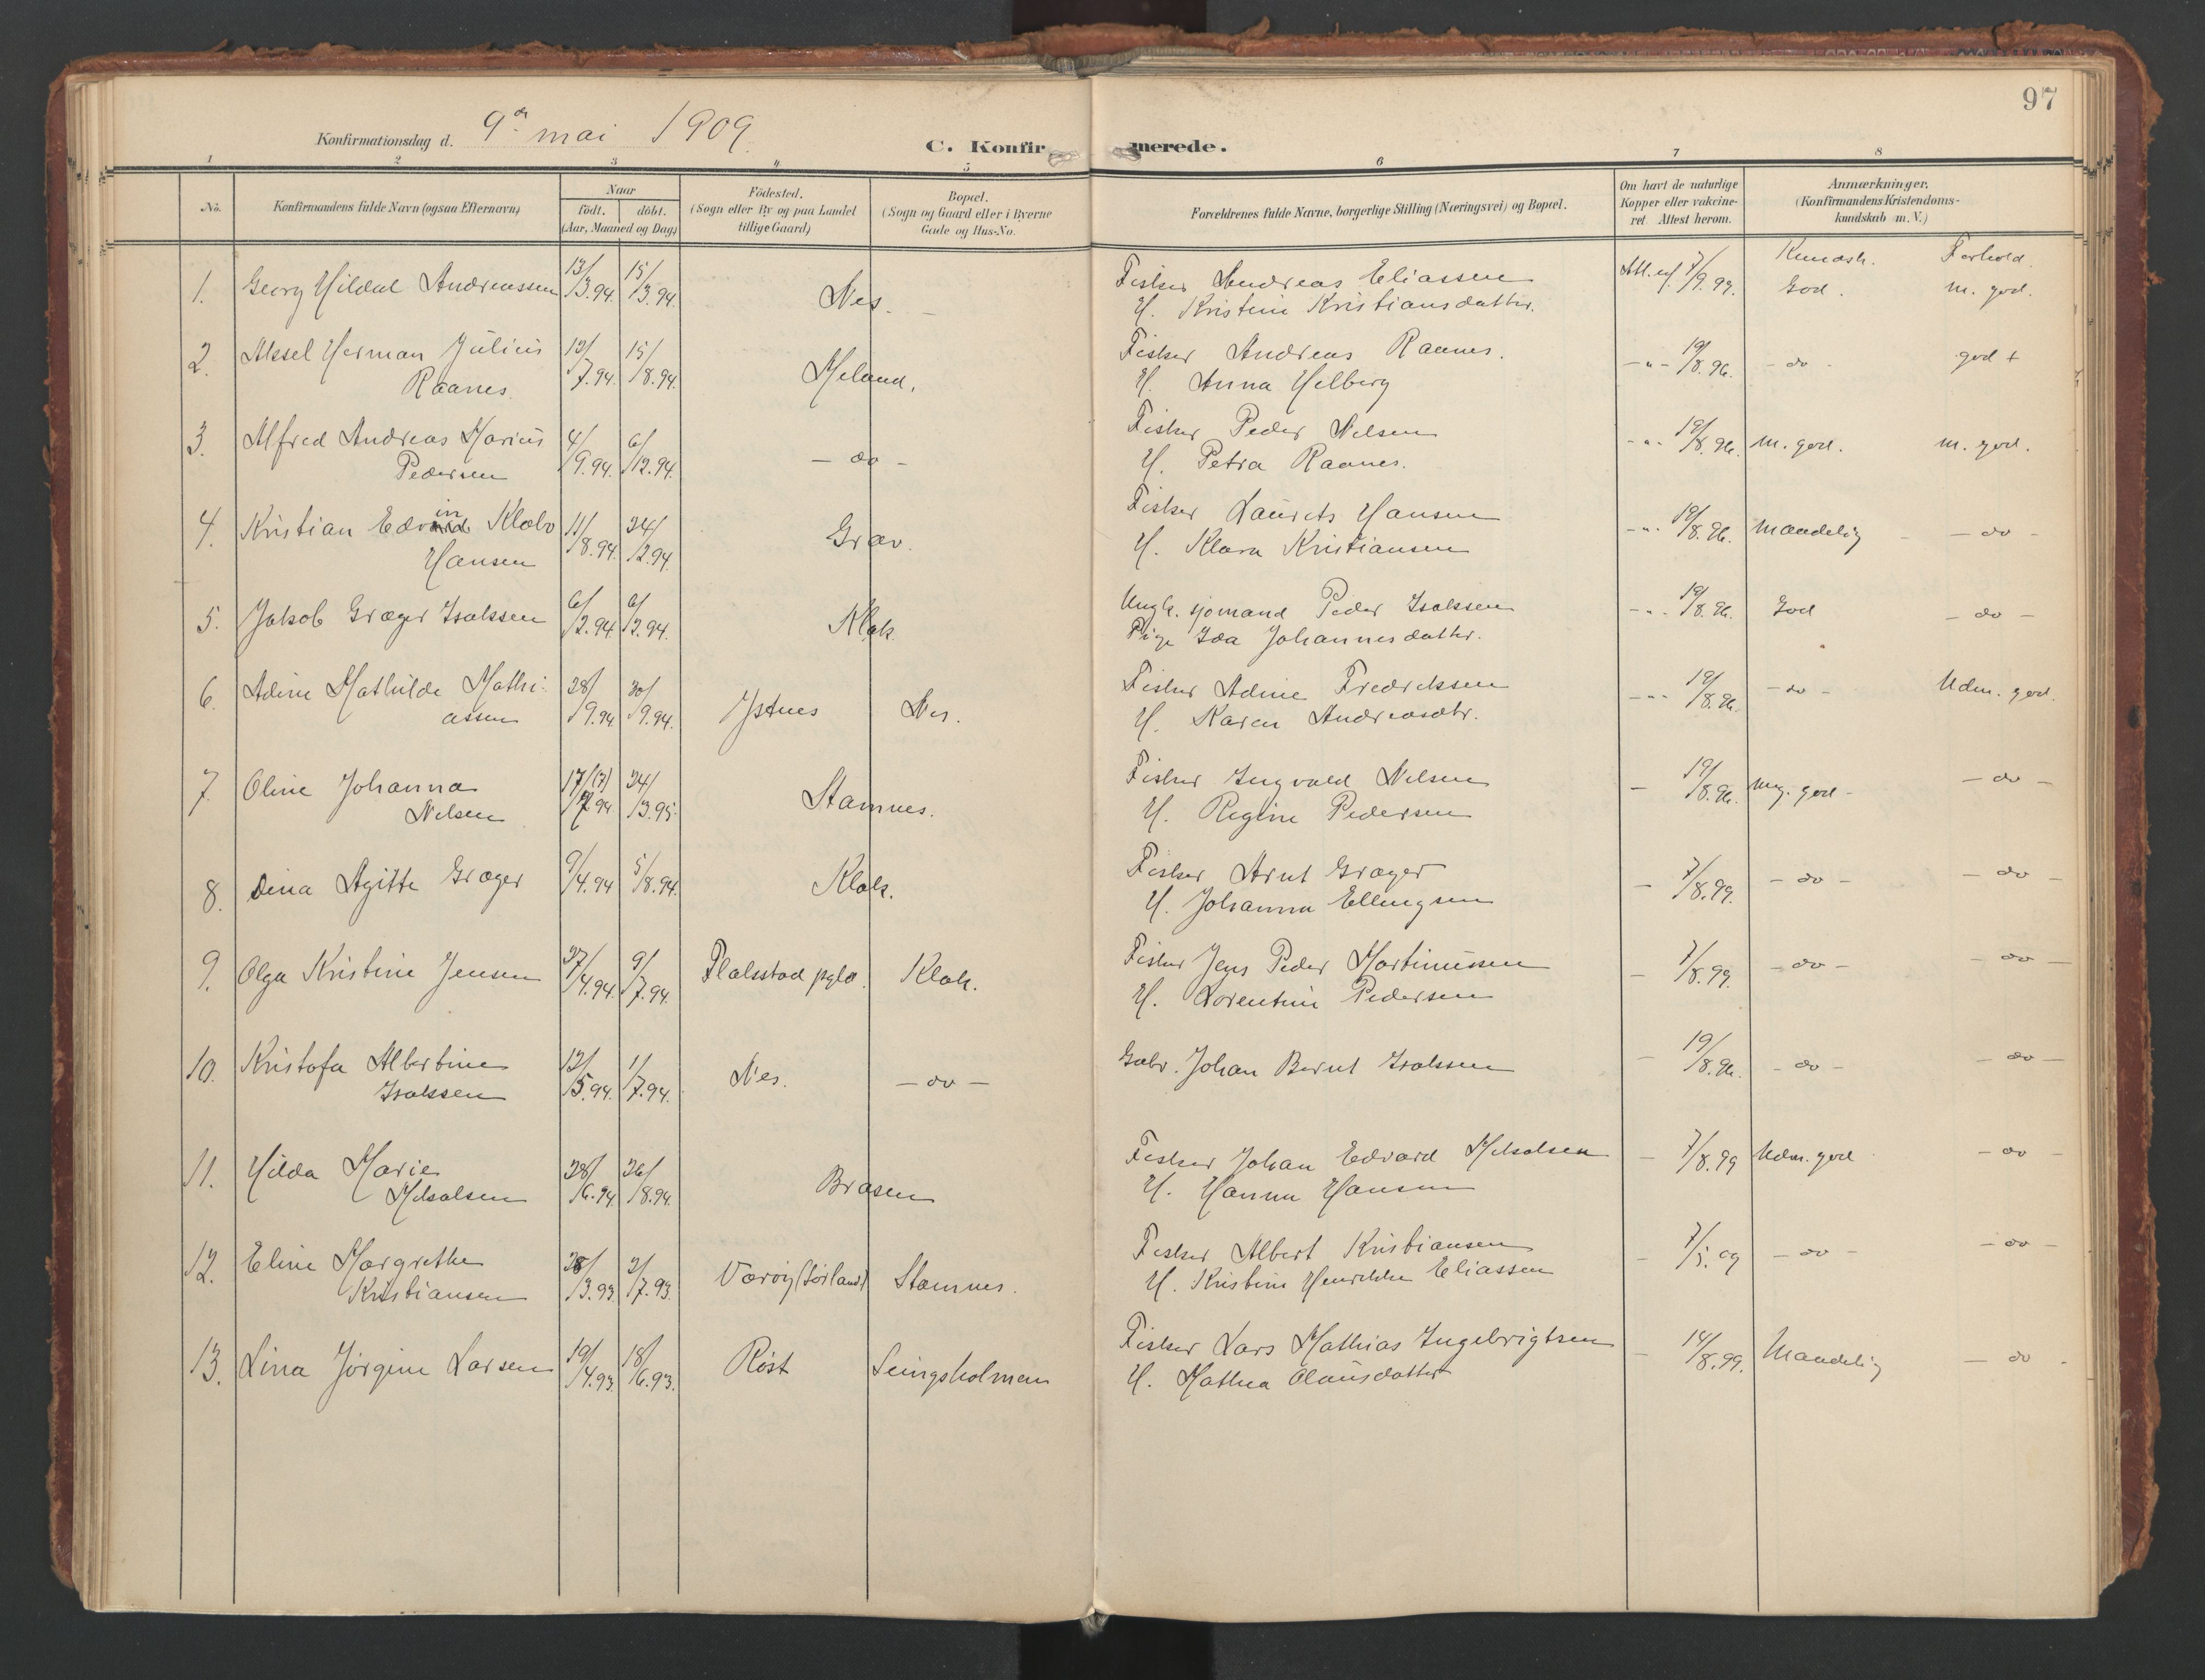 97
Konfirmationsdag d. 9de mai 1909
C. Konfirmerede.
1 2 3 4 5 6 7 8
No. Konfirmandens fulde Navn (ogsaa Efternavn) Naar födt. döbt. (Aar, Maaned og Dag) Födested. (Sogn eller By og paa Landet tillige Gaard) Bopæl. (Sogn og Gaard eller i Byerne Gade og Hus-No. Forældrenes fulde Navne, borgerlige Stilling (Næringsvei) og Bopæl. Om havt de naturlige Kopper eller vakcineret. Attest herom. Anmærkninger, (Konfirmandens Kristendomskundskab m. V.)
Kundsk. Forhold.
1. Georg Hildal Andreassen 13/3.94. 15/3.94. Nes. Fisker Andreas Eliassen Att. af 7/9.99. God. m. god.
H. Kristine Kristiansdatter.
2. Aksel Herman Julius 12/7.94. 15/8.94. Meland. Fisker Andreas Raanes. -"- 19/8.96. - do - god +
Raanes. H. Anna Helberg
3. Alfred Andreas Marius 4/9.94. 6/12.94. - do - Fisker Peder Nilsen -"- 19/8.96. m. god. m. god.
Pedersen H. Petra Raanes.
4. Kristian Edvin Klæbo 11/8.94. 24/12.94. Grav. Fisker Laurits Hansen -"- 19/8.96. Maadelig - do -
Hansen H. Klara Kristiansen
5. Jakob Græger Isaksen 6/2.94 6/2.94. Klak. Ungk. sjømand Peder Isaksen -"- 19/8.96. God - do -
Pige Ida Johannesdatter.
6. Adine Mathilde Mathi- 28/9.94 30/9.94. Ystnes Nes. Fisker Adine Fredriksen -"- 19/8.96. - do - Udm. god.
assen H. Karen Andreasdtr.
7. Oline Johanna 17/(7)/7.94 24/3.95. Stamnes. Fisker Ingvald Nilsen - 19/8.96. Mg. god - - do -
Nilsen H. Regine Pedersen
8. Dina Agitte Græger 9/4.94 5/8.94. Klak. Fisker Arnt Græger - 7/8.99. - do - - do -
H. Johanna Ellingsen
9. Olga Kristine Jensen 27/4.94. 9/7.94. Flakstad pgld. Klak. Fisker Jens Peder Martinussen - 7/8.99. - do - - do -
H. Lorentine Pedersen
10. Kristofa Albertine 12/5.94. 1/7.94. Nes. - do - Gbr. Johan Bernt Isaksen - 19/8.96. - do - - do -
Isaksen
11. Hilda Marie 28/6.94 26/8.94. Brasen Fisker Johan Edvard Mikalsen - 7/8.99 Udm. god - do -
Mikalsen H. Hanna Hansen
12. Eline Margrethe 28/3.93. 2/7.93. Værøy (Sørland) Stamnes. Fisker Albert Kristiansen - 7/5. 09 - do - - do -
Kristiansen H. Kristine Henrikke Eliassen
13. Lina Jørgine Larsen 19/4.93. 18/6.93. Røst Seingsholmen Fisker Lars Mathias Ingebrigtsen - 14/8.99. Maadelig - do -
H. Mathea Olausdatter